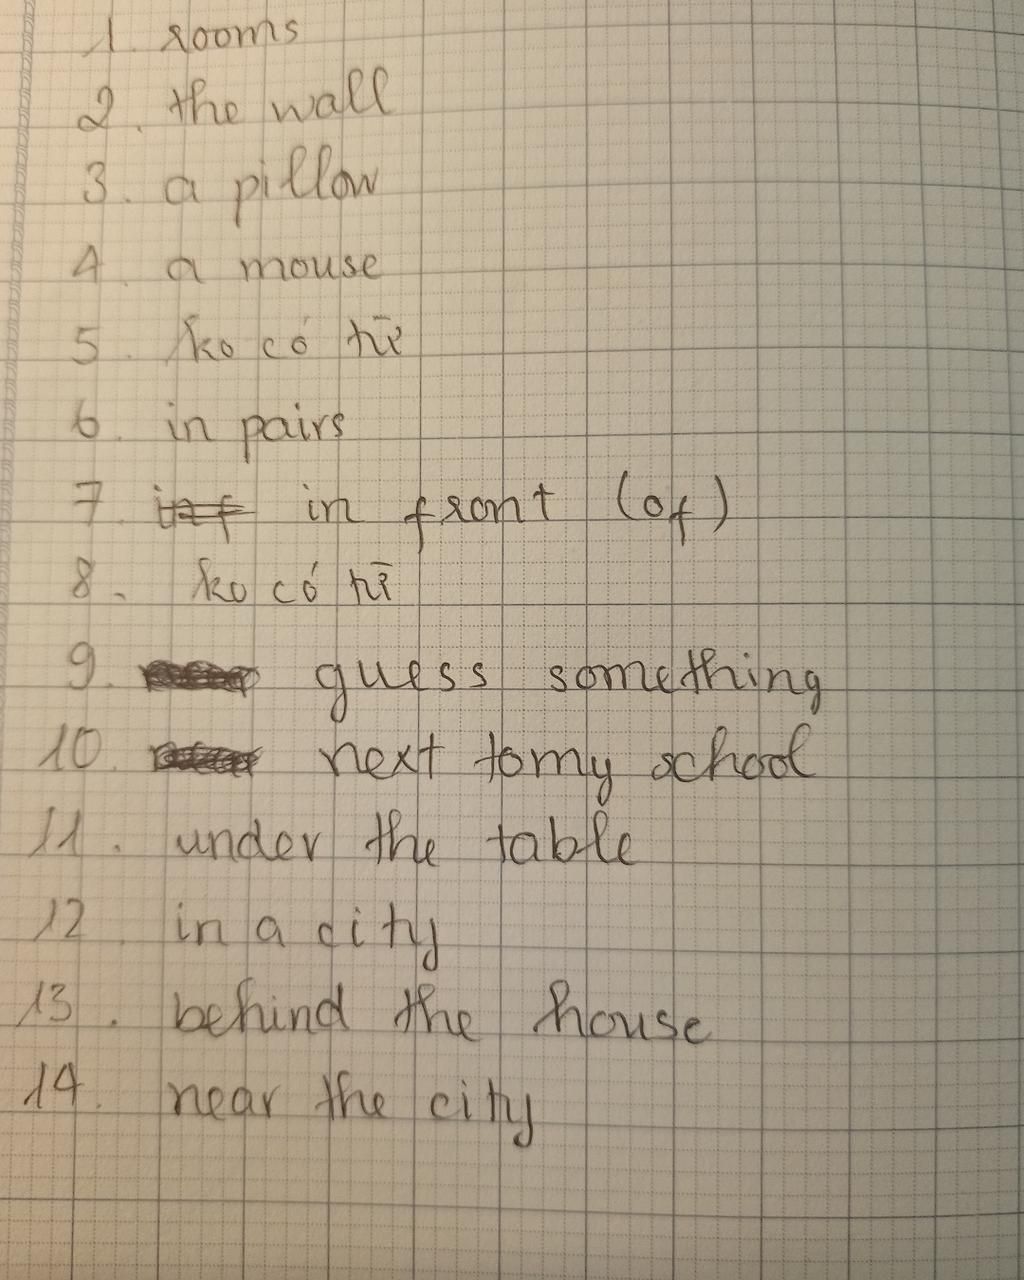 1. rooms
2. the wall
3. a pillow
4. a mouse
5. ko có
6. in pairs
7. in front (of)
8. ko có
9. guess something
10. next to my school
11. under the table
12. in a city
13. behind the house
14. near the city